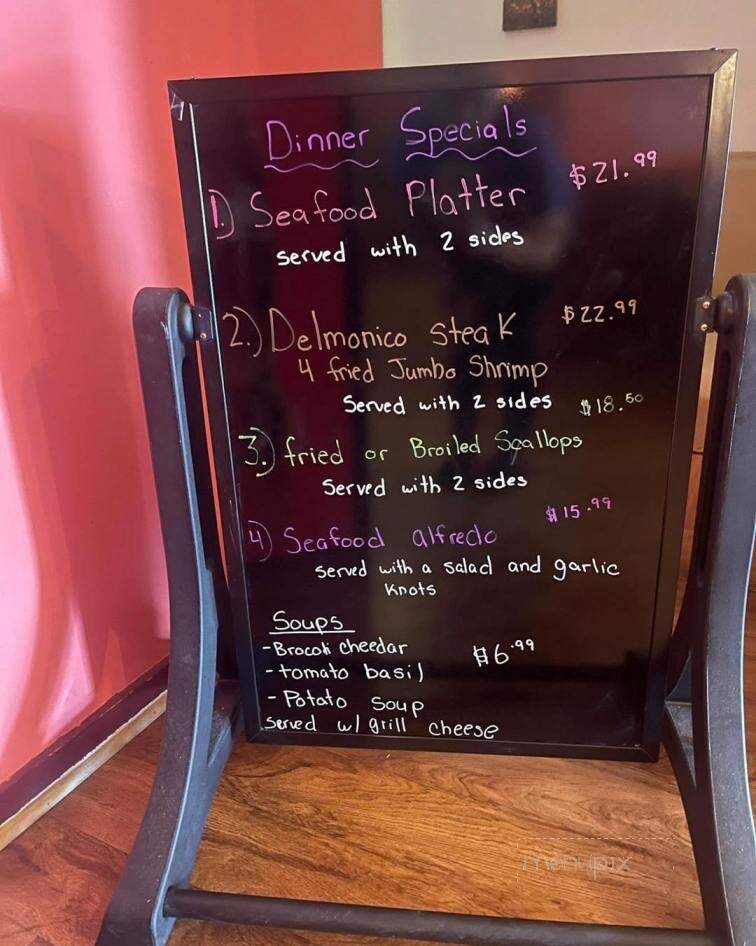 4
Dinner Specials
1.) Seafood Platter $21.99
served with 2 sides
2.) Delmonico steak $22.99
4 fried Jumbo Shrimp
Served with 2 sides $18.50
3.) fried or Broiled Scallops
Served with 2 sides
$15.99
4) Seafood alfredo
served with a salad and garlic
knots
Soups
-Brocoli cheedar $6.99
-tomato basil
-Potato soup
served w/ grill cheese
menupix